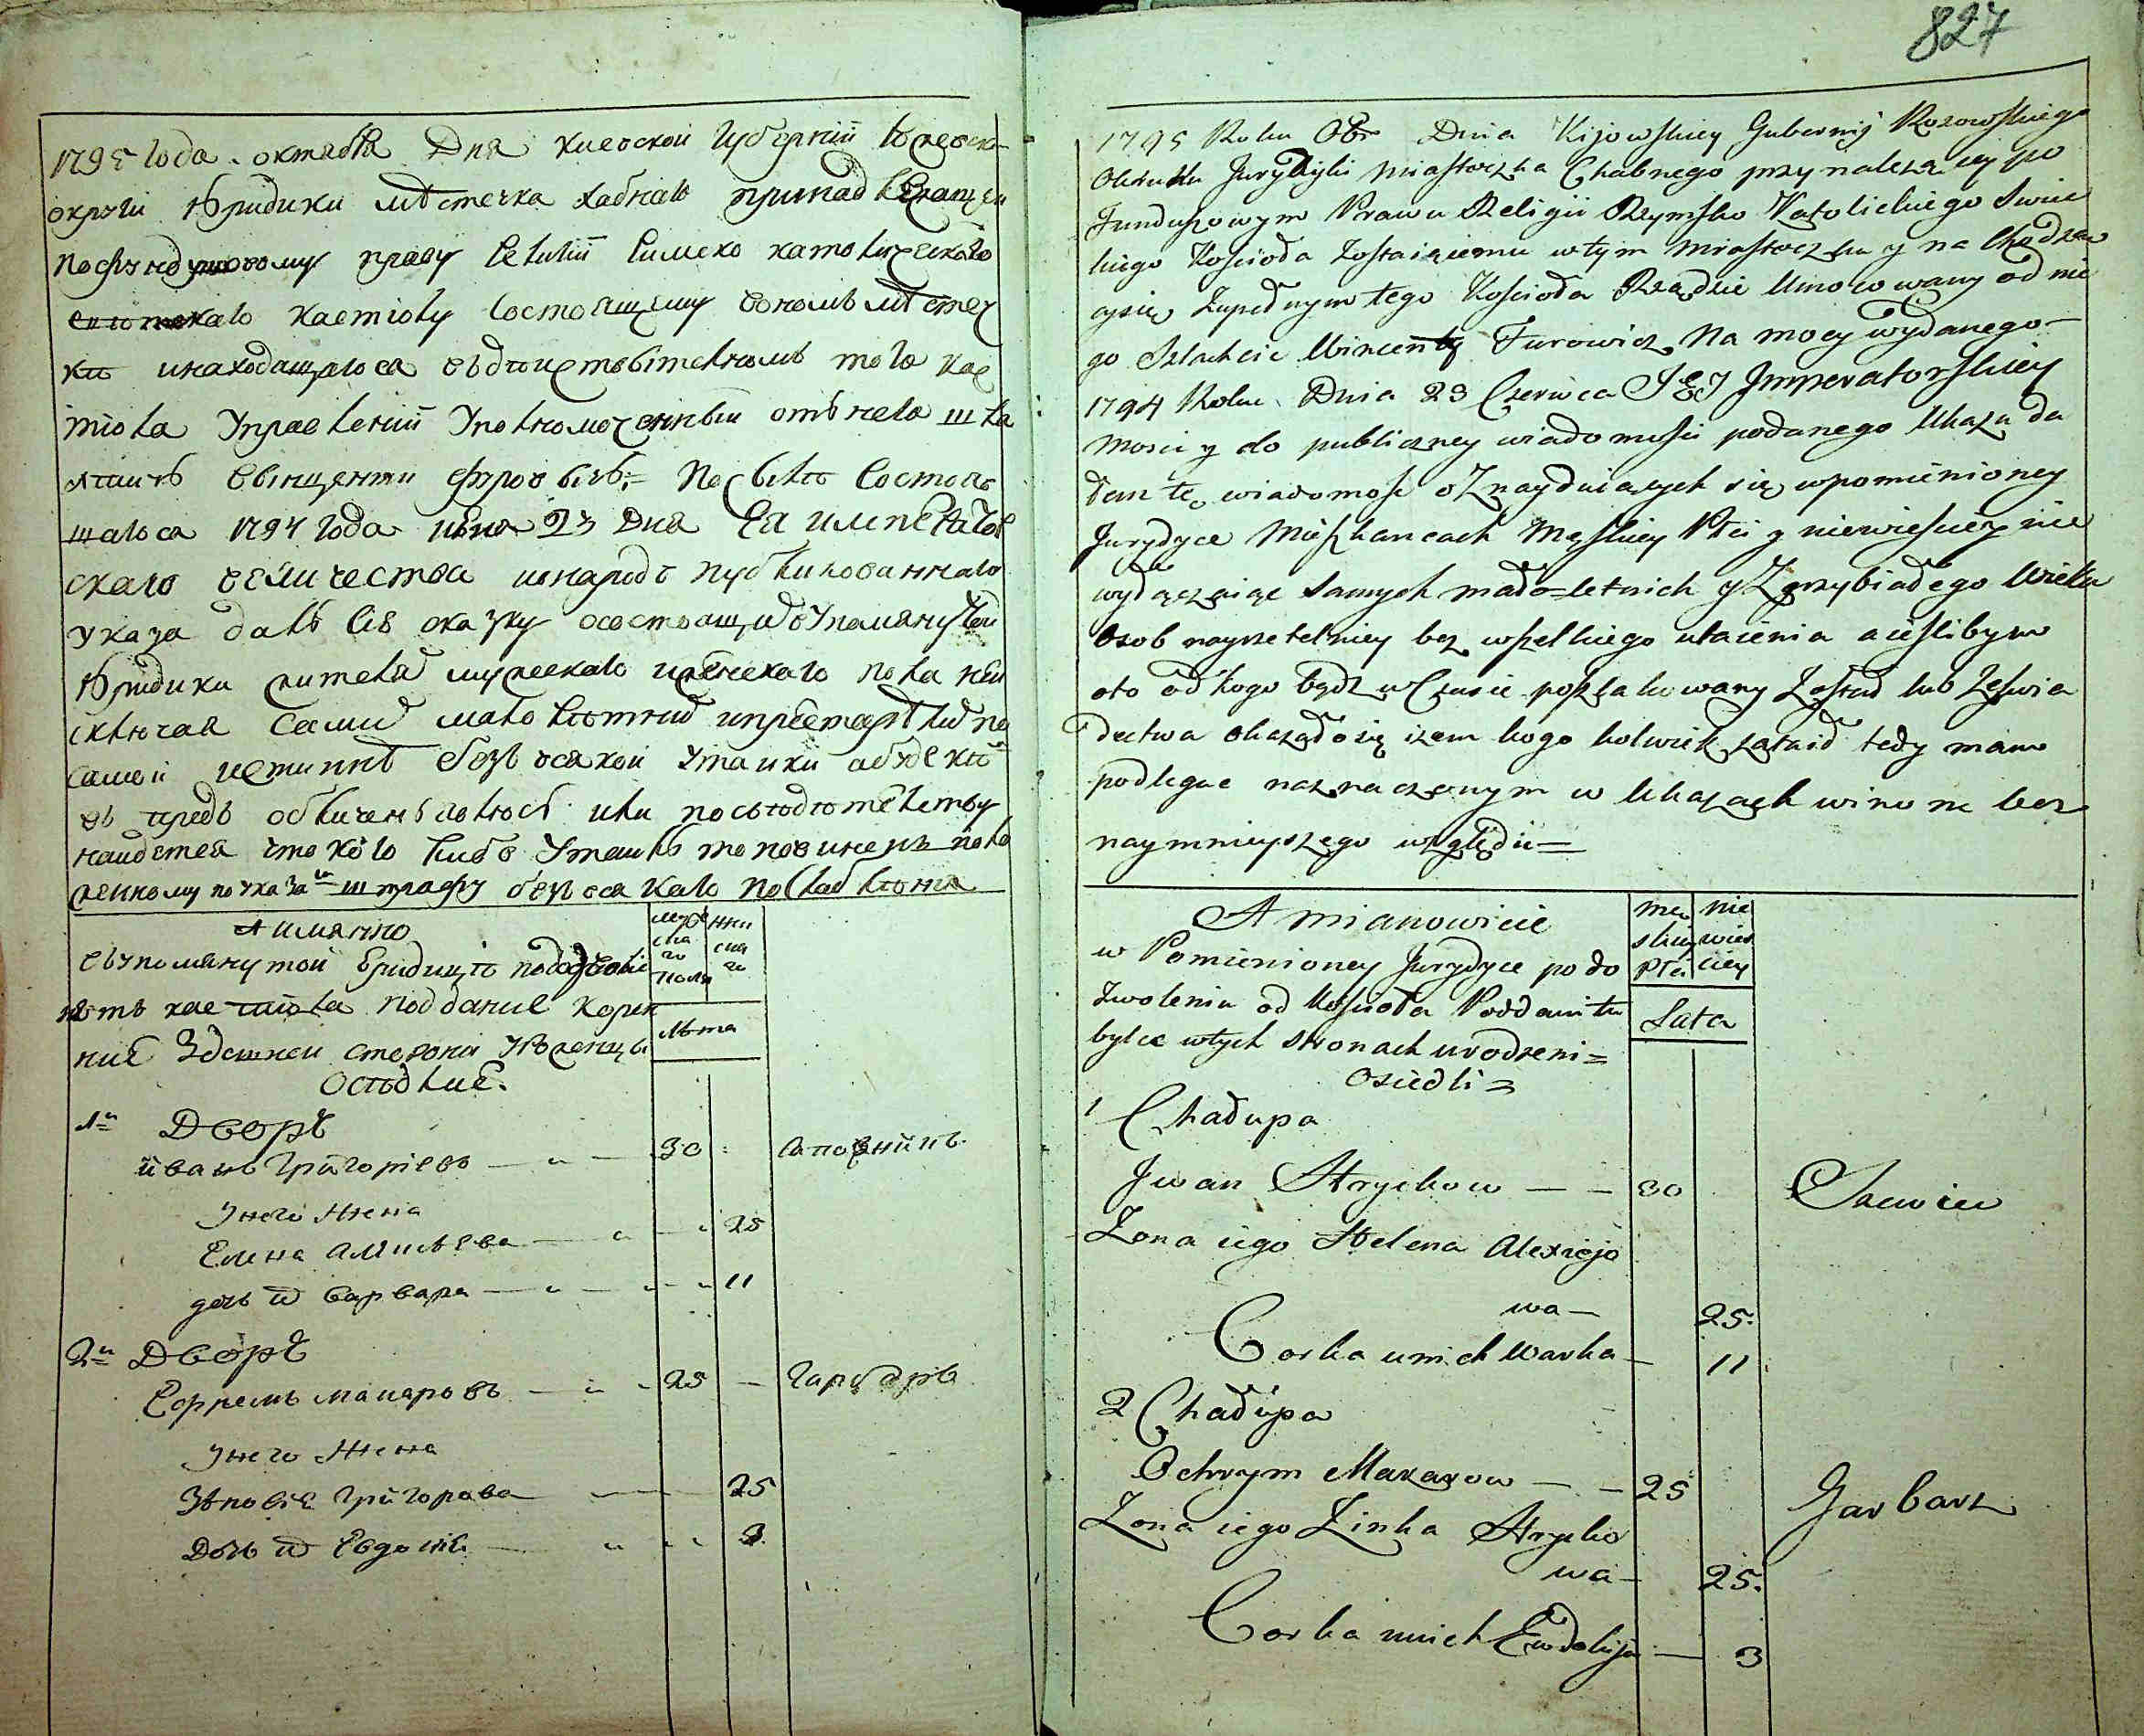 827
1795 года октября Дня киевской Губернии
округи Юридики мѣстечка Хабнаго принадлежащей
по фундушовому праву Религии Римско католическаго
костиолу состоящему во ономъ мѣстеч
кѣ инаходащагося въ того кос
тиола Управлении Уполномоченный отъ него шла
хтичь Винценти Фурович = Послѣ состояв
шагося 1794 года июня 23 Дня Ея императорс
скаго величества и в народъ публикованнаго
указа далъ сию сказку осостоящих вупомянутой
Юридики жителях мужескаго и женскаго пола не
исключая самих малолѣтних и престарѣлых по
самой истиннѣ безъ всякой утайки абуде кто
въ предь обличенъ или по свидѣтелству
найдется что кого либо утаилъ то повиненъ поло
женному по указам штрафу безъ всякаго послабления
А имянно
мужескаго женскаго пола
вупомянутой юридицѣ
костиола подданые корен
ние Здешней стороны уроженцы
лѣта
осѣдлие.
1й Дворъ
иванъ Григориевъ — " — 30
Унего жена
Елена Алексѣева — " — 25
дочь их варвара — " — 11
2й Дворъ
Ефремъ макаровъ — " — 25 — гарбаръ
Унего жена
Зѣновия Григорова — 25
Дочь их Евдокия — 3
1795 Roku 8br Dnia Kijowskiey Gubernij Korowskiego
Okruhu Jurydyki Miasteczka Chabnego przynalezącey po
Funduszowym Prawu Religii Rzymsko Katolickiego Swiec
kiego Kościoła Zostaiącemu w tym Miasteczku y na Chodzą
cysię Zupełnym tego Kościoła Rządzie Umocowany od nie
go Szlachcic Wincenty Furowicz Na mocy wydanego
1794 Roku Dnia 23 Czerwca J E J Imperatorskiey
Mosci y do publiczney wiadomości podanego Ukazu da
łem tę wiadomość o Znayduiących się wpomienioney
Jurydyce Mieszkancach Męskiey Płci y niewiesciey nie
wyłączaiąc samych mało=letnich y Zgrzybiałego Wieku
Osob nayrzetelniey bez wszelkiego utaienia a ieslibym
oto od kogo bądz w Czasie poszlakowany Został lub Zeswia
dectwa okazało się izem kogo kolwiek zataił tedy mam
podlegac naznaczonym w Ukazach winom bez
naymnieyszego względu =
A mianowicie
męskiey płci niewiesciey
w Pomienioney Jurydyce po do
zwoleniu od Kościoła Poddani tu
bylce wtych stronach urodzeni =
Lata
Osiedli =
1 Chałupa
Jwan Hryckow — — 30 Szewiec
Zona iego Helena Alexiejo
wa — 25.
Corka unich Warka — 11
2 Chałupa
Ochrym Makarow — — 25 Garbarz
Zona iego Zinka Hrycko
wa — 25.
Corka unich Ewdokija — 3